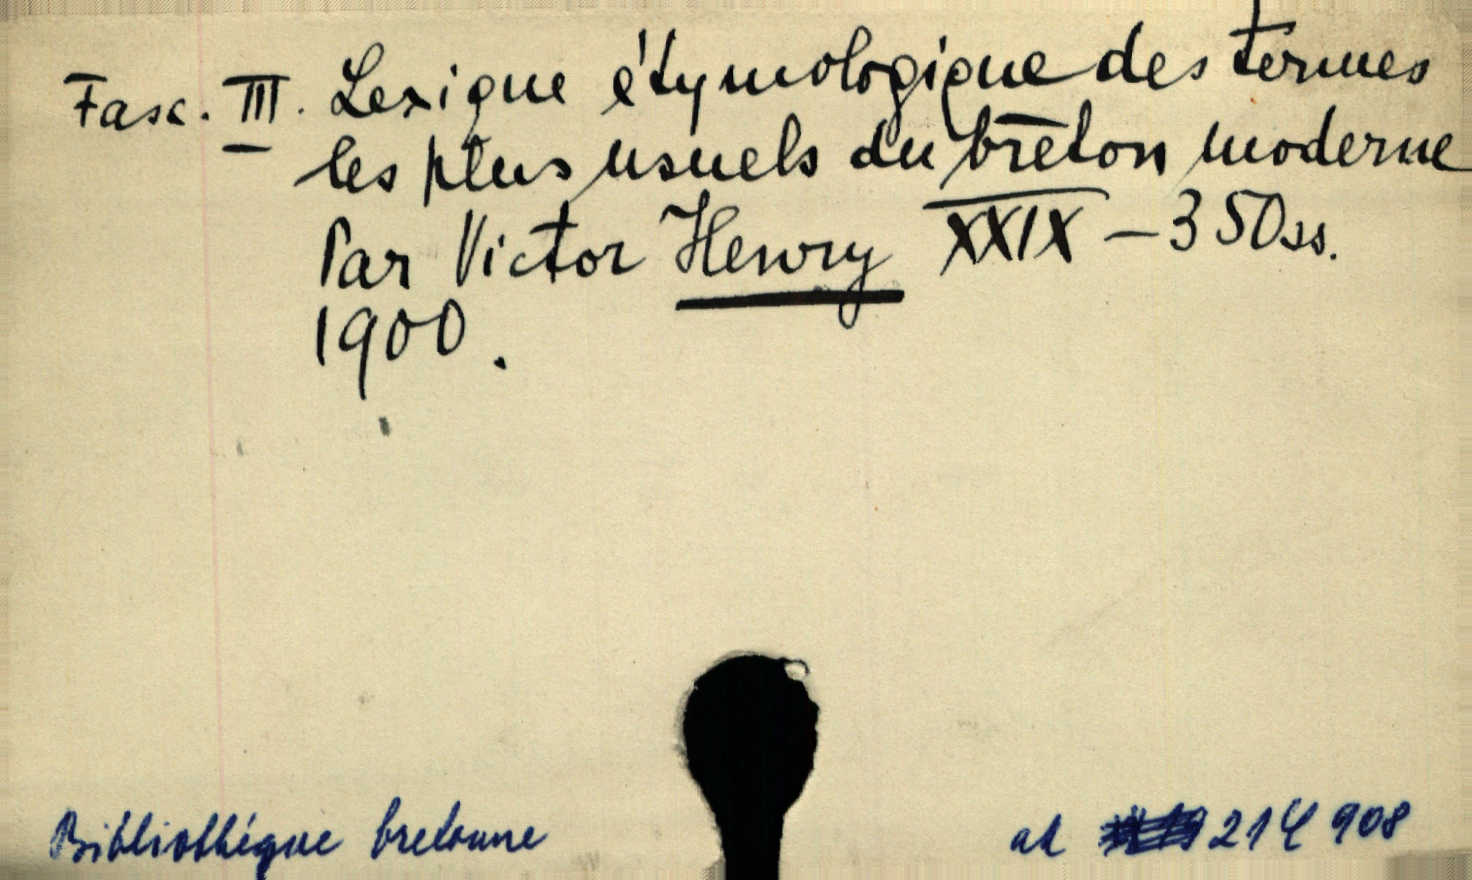 Fasc. III. Lexique étymologique des termes
les plus usuels du breton moderne
Par Victor Henry XXIX – 350 ss.
1900.
Bibliothéque bretonne
ak 214 908